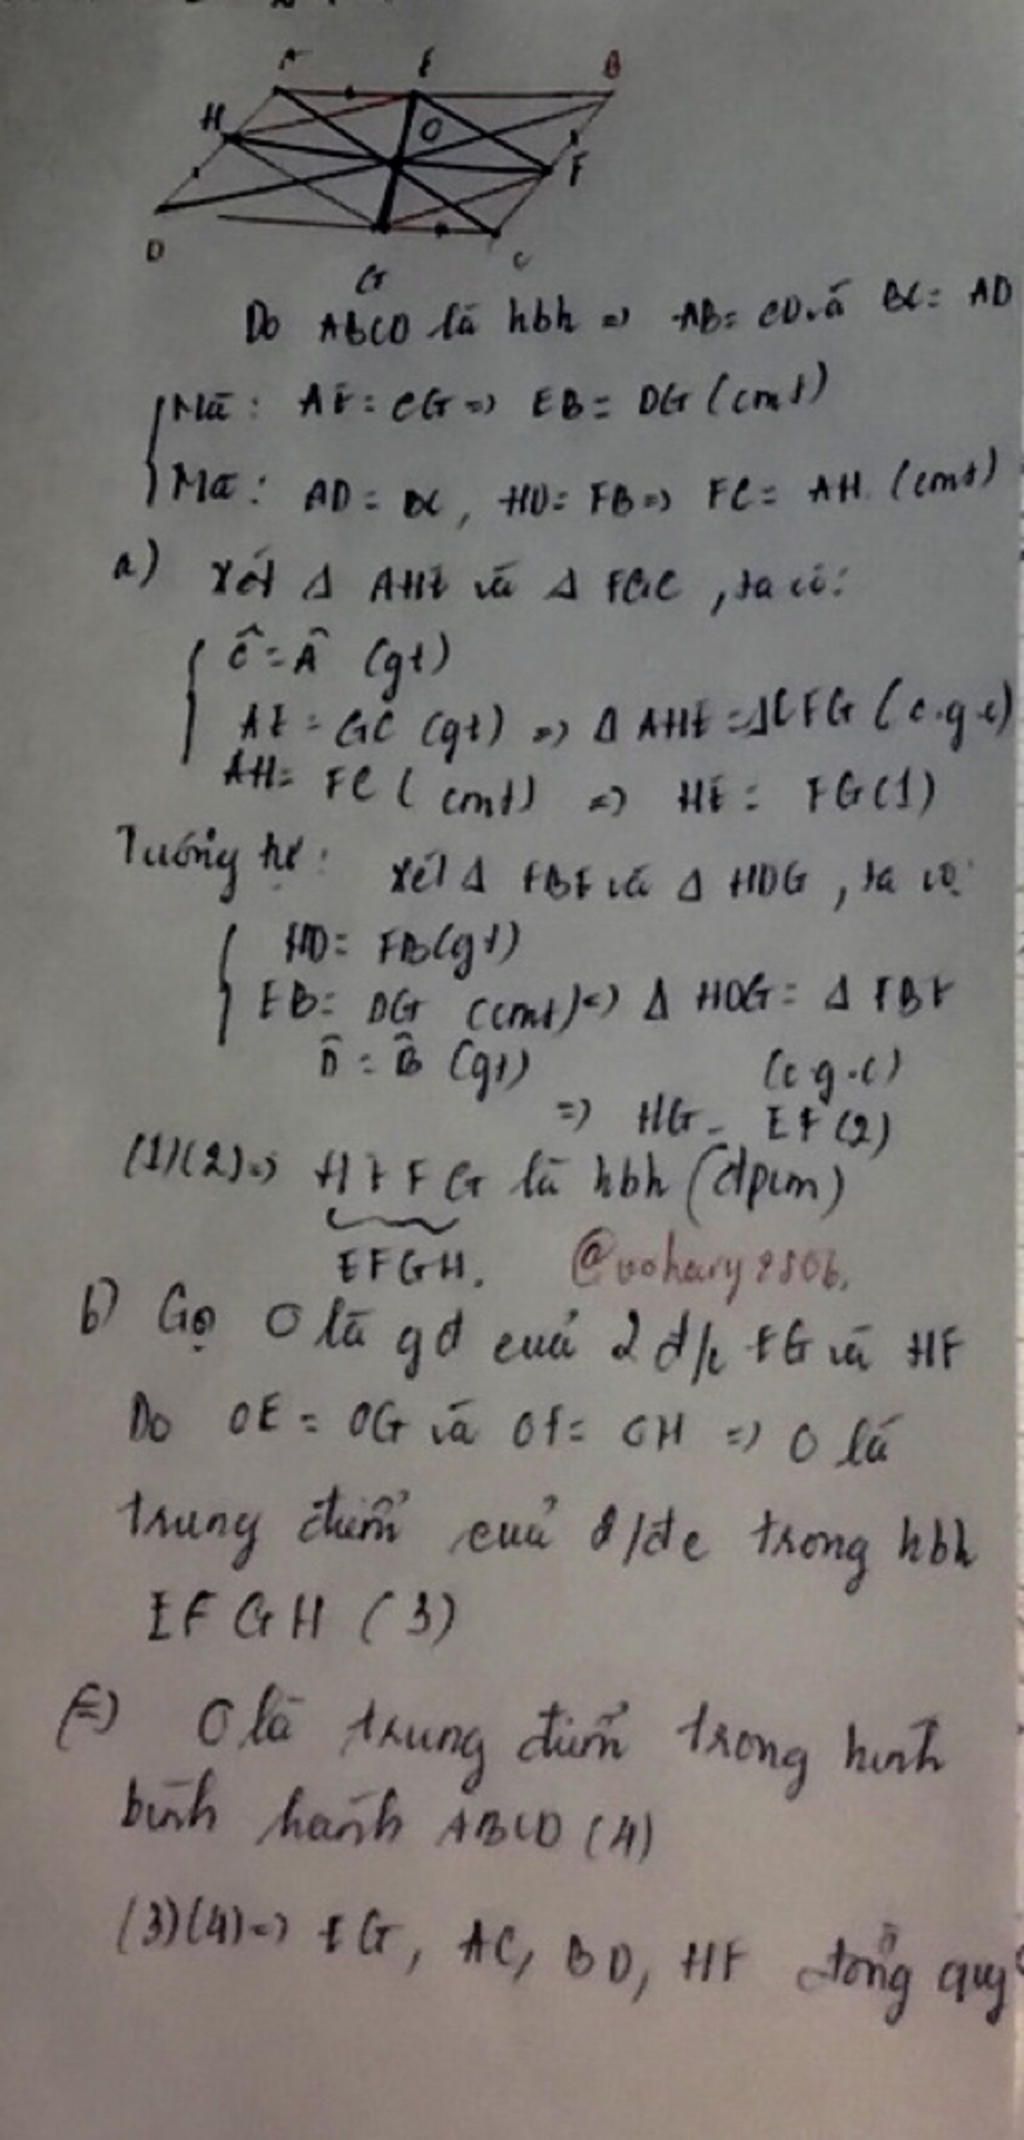 A E B
H O
F
D
G C
Do ABCD là hbh => AB = CD và BC = AD
Mà : AE = CG => EB = DG (cmt)
Mà : AD = BC, HD = FB => FC = AH (cmt)
a) Xét Δ AHE và Δ FGC, ta có:
Ĉ = Â (gt)
AE = GC (gt) => Δ AHE = ΔCFG (c.g.c)
AH = FC (cmt) => HE = FG (1)
Tương tự: Xét Δ EBF và Δ HDG, ta có:
HD = FB (gt)
EB = DG (cmt) => Δ HDG = Δ FBE
D̂ = B̂ (gt) (c.g.c)
=> HG = EF (2)
(1)(2) => HEFG là hbh (đpcm)
EFGH. @vohary2806.
b) Gọi O là gđ của 2 đ/c EG và HF
Do OE = OG và OF = OH => O là
trung điểm của đ/c trong hbh
EFGH (3)
O là trung điểm trong hình
bình hành ABCD (4)
(3)(4) => EG, AC, BD, HF đồng quy